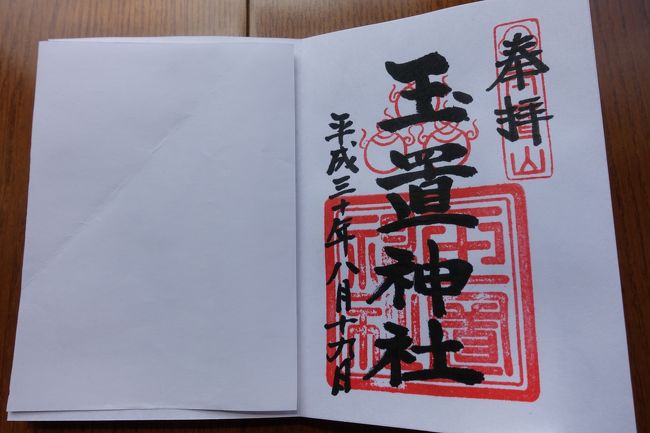 奉拝
玉置神社
平成三十年八月十九日
玉置
神社